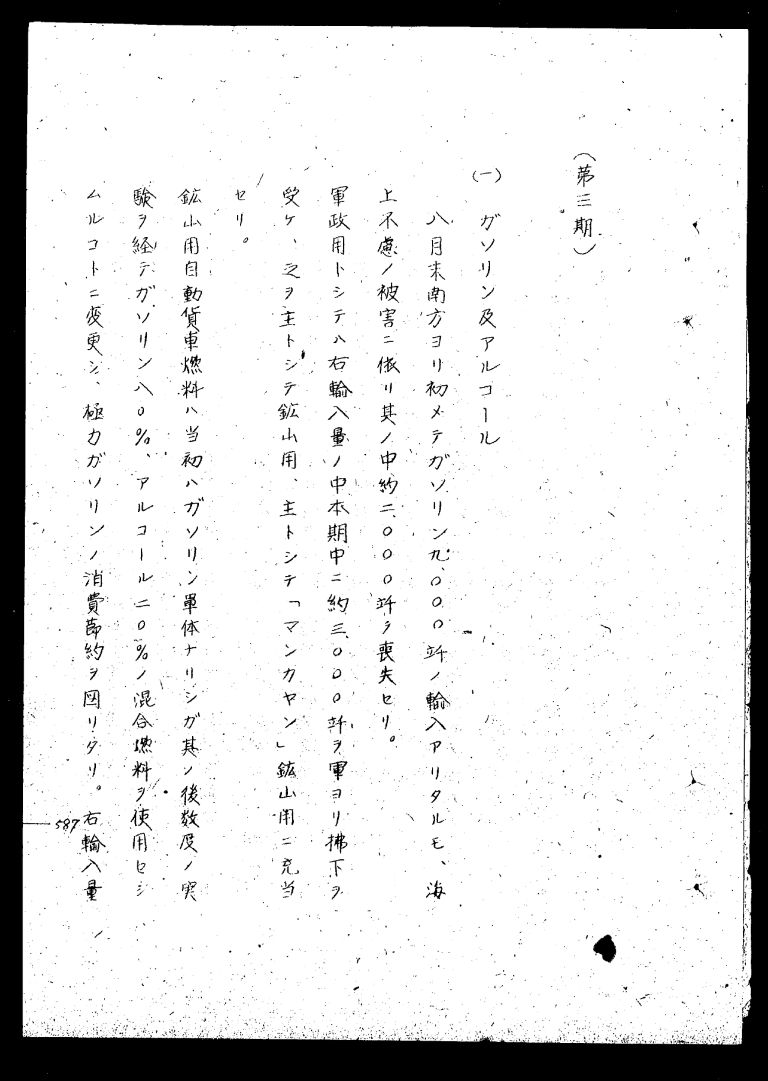 （第三期）
（一）　ガソリン及アルコール
八月末南方ヨリ初メテガソリン九、〇〇〇竏ノ輸入アリタルモ、海
上不慮ノ被害ニ依リ其ノ中約二、〇〇〇竏ヲ喪失セリ。
軍政用トシテハ右輸入量ノ中本期中ニ約三、〇〇〇竏ヲ軍ヨリ拂下ヲ
受ケ、之ヲ主トシテ鉱山用、主トシテ「マンカヤン」鉱山用ニ充当
セリ。
鉱山用自動貨車燃料ハ当初ハガソリン単体ナリシガ其ノ後数度ノ実
験ヲ経テガソリン八〇%、アルコール二〇%ノ混合燃料ヲ使用セシ
ムルコトニ変更シ、極力ガソリンノ消費節約ヲ図リタリ。右輸入量
587